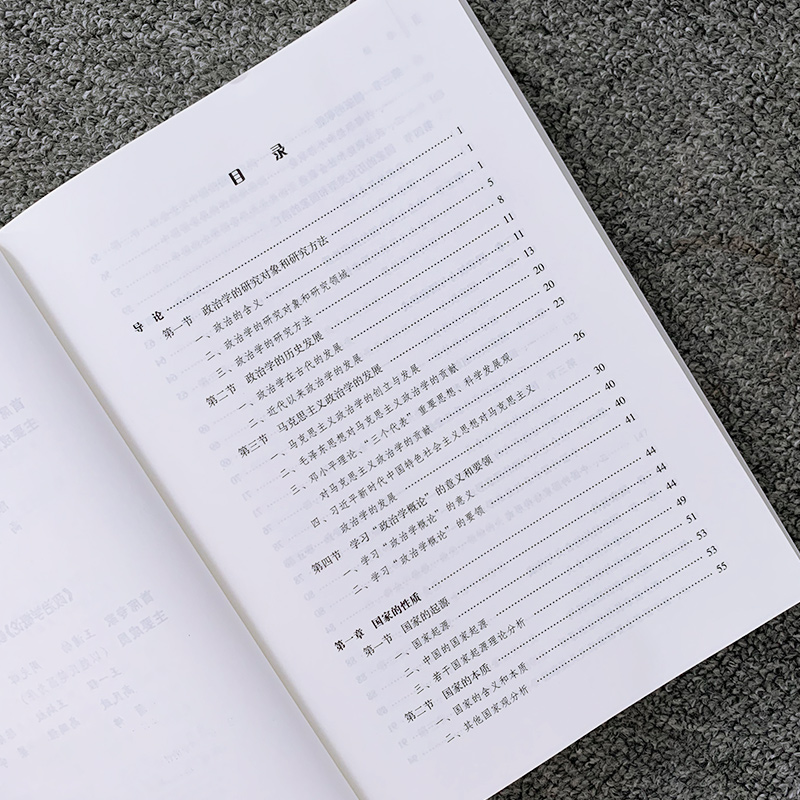 目 录
导 论 1
第一节 政治学的研究对象和研究方法 1
一、政治的含义 1
二、政治学的研究对象和研究领域 5
三、政治学的研究方法 8
第二节 政治学的历史发展 11
一、政治学在古代的发展 11
二、近代以来政治学的发展 13
第三节 马克思主义政治学的发展 20
一、马克思主义政治学的创立与发展 20
二、毛泽东思想对马克思主义政治学的贡献 23
三、邓小平理论、“三个代表”重要思想、科学发展观
对马克思主义政治学的贡献 26
四、习近平新时代中国特色社会主义思想对马克思主义
政治学的发展 30
第四节 学习“政治学概论”的意义和要领 40
一、学习“政治学概论”的意义 40
二、学习“政治学概论”的要领 41
第一章 国家的性质 44
第一节 国家的起源 44
一、国家起源 44
二、中国的国家起源 49
三、若干国家起源理论分析 51
第二节 国家的本质 53
一、国家的含义和本质 53
二、其他国家观分析 55